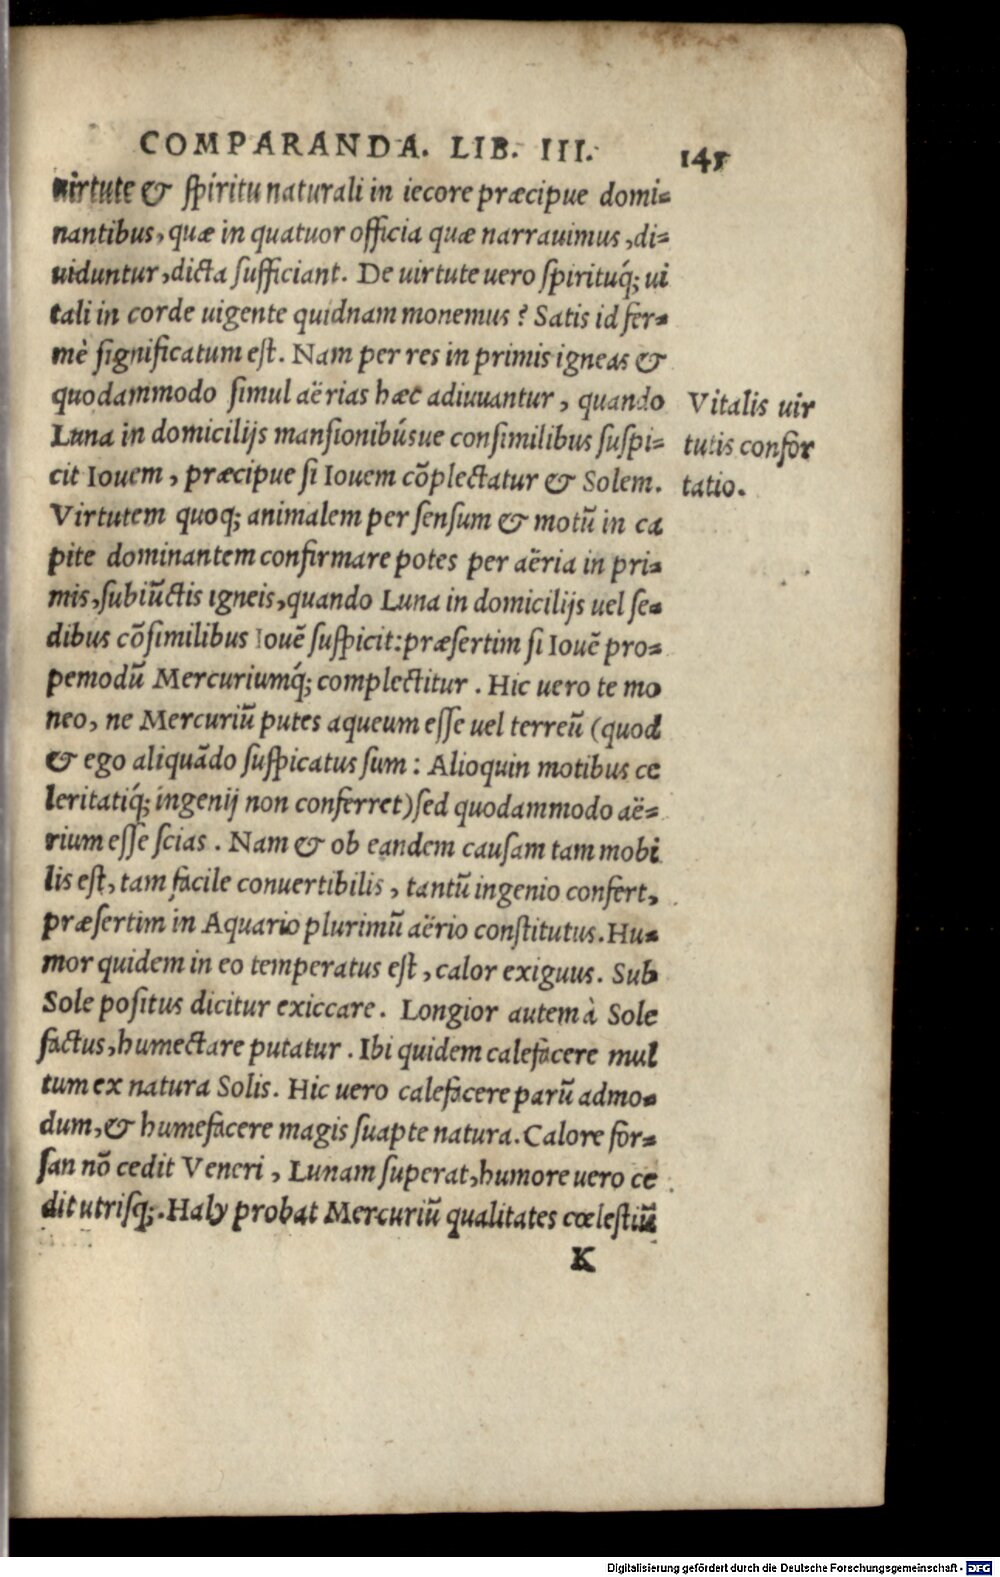 COMPARANDA. LIB. III. 145
uirtute & spiritu naturali in iecore præcipue domi=
nantibus, quæ in quatuor officia quæ narrauimus, di=
uiduntur, dicta sufficiant. De uirtute uero spirituq́; ui
tali in corde uigente quidnam monemus? Satis id fer=
mè significatum est. Nam per res in primis igneas &
quodammodo simul aërias hæc adiuuantur, quando
Luna in domicilijs mansionibúsue consimilibus suspi=
cit Iouem, præcipue si Iouem cõplectatur & Solem.
Virtutem quoq; animalem per sensum & motũ in ca
pite dominantem confirmare potes per aëria in pri=
mis, subiũctis igneis, quando Luna in domicilijs uel se=
dibus cõsimilibus Iouẽ suspicit: præsertim si Iouẽ pro=
pemodũ Mercuriumq́; complectitur. Hic uero te mo
neo, ne Mercuriũ putes aqueum esse uel terreũ (quod
& ego aliquãdo suspicatus sum: Alioquin motibus ce
leritatiq́; ingenij non conferret) sed quodammodo aë=
rium esse scias. Nam & ob eandem causam tam mobi
lis est, tam facile conuertibilis, tantũ ingenio confert,
præsertim in Aquario plurimũ aërio constitutus. Hu=
mor quidem in eo temperatus est, calor exiguus. Sub
Sole positus dicitur exiccare. Longior autem à Sole
factus, humectare putatur. Ibi quidem calefacere mul
tum ex natura Solis. Hic uero calefacere parũ admo=
dum, & humefacere magis suapte natura. Calore for=
san nõ cedit Veneri, Lunam superat, humore uero ce
dit utrisq;. Haly probat Mercuriũ qualitates cœlestiũ
K
Vitalis uir
tutis confor
tatio.
Digitalisierung gefördert durch die Deutsche Forschungsgemeinschaft - DFG